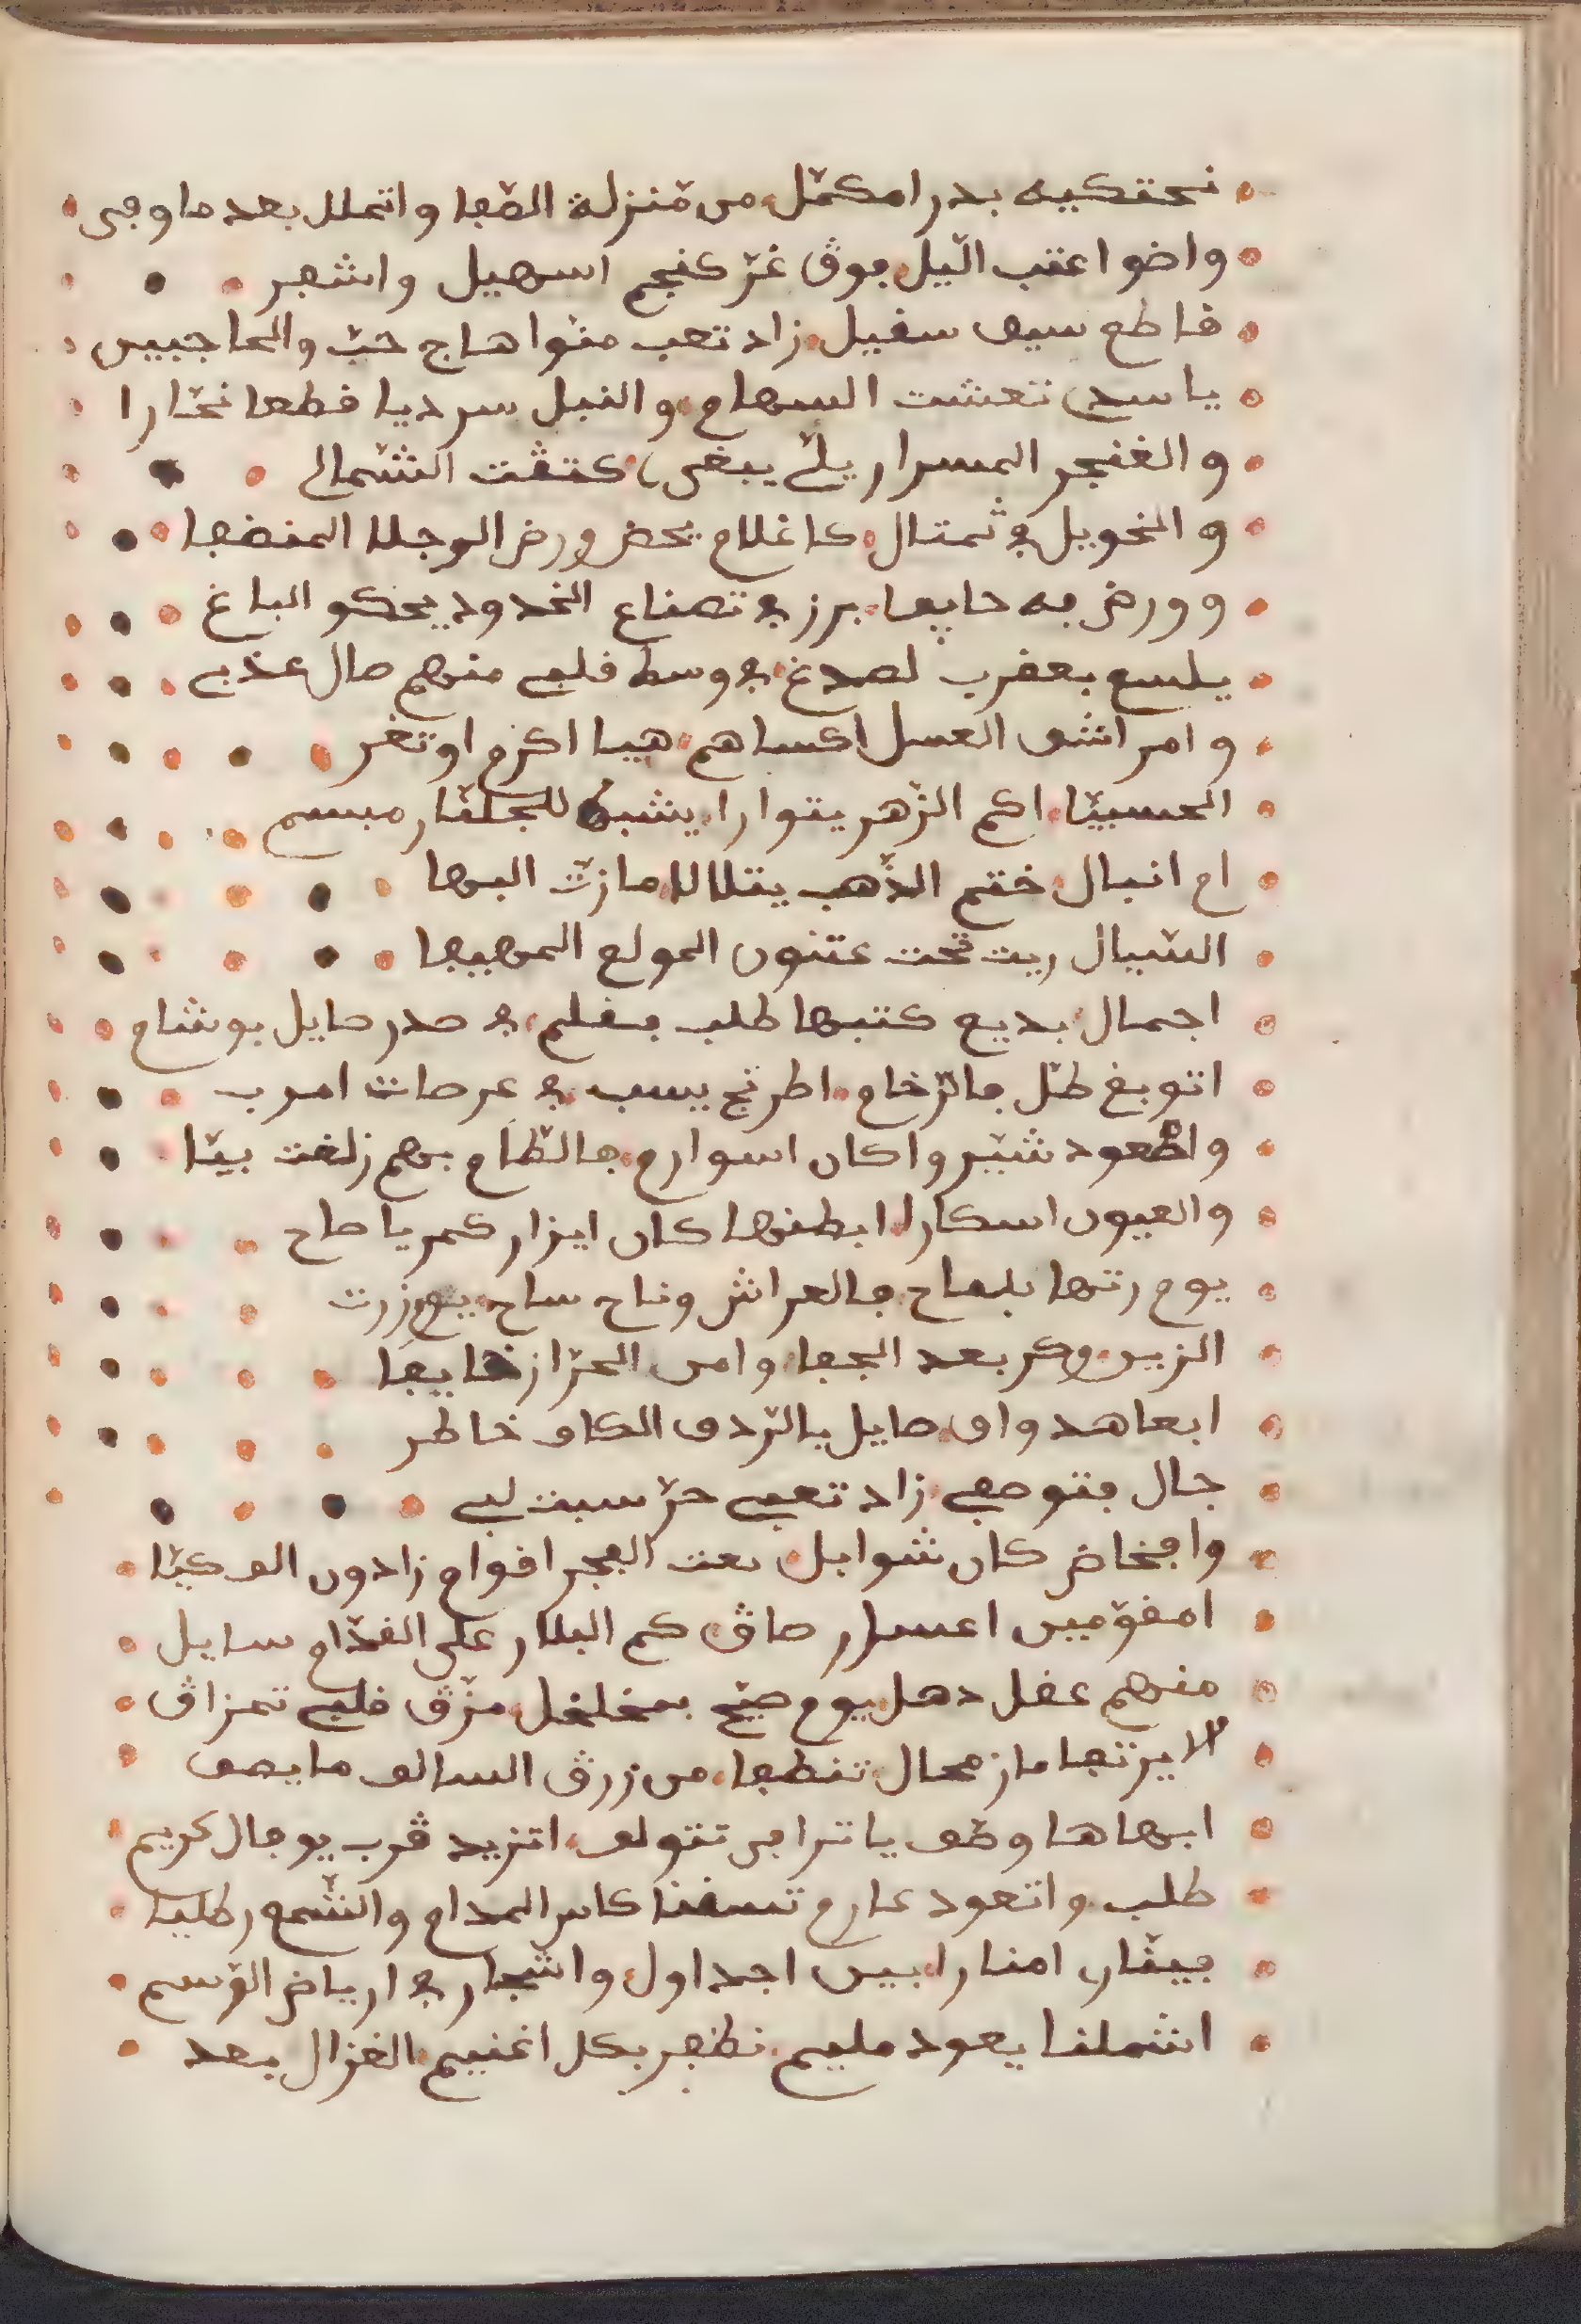 نحتكيه بدرا مكمّل من مّنزلة الصّفا واتحلل بعد ما وفى
واضوا عتب الّيل بوق غرّ كنجم اسهيل واشفر
قاطع سيف سفيل زاد تعب منّوا هاج حبّ والحاجبين
ياسدي نعشت السهام والنبل سرديا قطعا نحّارا
والغنجر المسرار يلّي يبغى كتڢت الشّمال
والخويل في تمثال كا غلام يحضر ورض الوجلا المنضفا
وورض به حايفا برز في تصناع الخدود يحكو الباغ
يلسع بعقرب لصدغ في وسط قلبي منهم صال عذبي
وامراشف العسل اكساهم هيبا اكرم اوتغر
الحسبيّا اكم الزّهر يتوارا يشبه للجلنّار مبسم
ام انبال ختم الذّهب يتلالا مازت البها
السّيال ريت تحت عتنون المولع المهيفا
اجمال بديع كتبها طلب بقلم في صدر صايل بوشام
اتوبغ طّل جا لرّخام اطرنج يسب في عرصات امرب
واطّعود شبّر واكان اسوارم جا لظّام بهم زلفت بيّا
والعيون اسكارا ابطنها كان ايزار كمريا صاح
يوم رتها بلماح جا لعراش وناح ساح يوم زرت
الزين وكر بعد الجفا وامن الحرّاز خايفا
ابعاهد واف صايل بالرّدف الكاف خاطر
جال بتوصفي زاد تعبي حرّ سبت لبي
وافخاض كان شوابل بعت البجر افواج زادون الف كيّا
امقوّمين اعسار صاڢ كم البلار على القدّام سايل
منهم عقل دهل يوم صيّح بمخلخل مزّق قلبي تمزاق
لا يرتها ماز محال تنطفا من زرق السالف ما يصف
ابهاها وصّف يا ترا من تتولف اتزيد قرب يوجال كريم
طلب واتعود عارم تسقنا كاس المدام والشّمع رطليا
بيتّار امنارا بين اجداول واشجار في ارياض الوّسم
اشملنا يعود مليم نظفر بكل اغنيم الغزال بعد